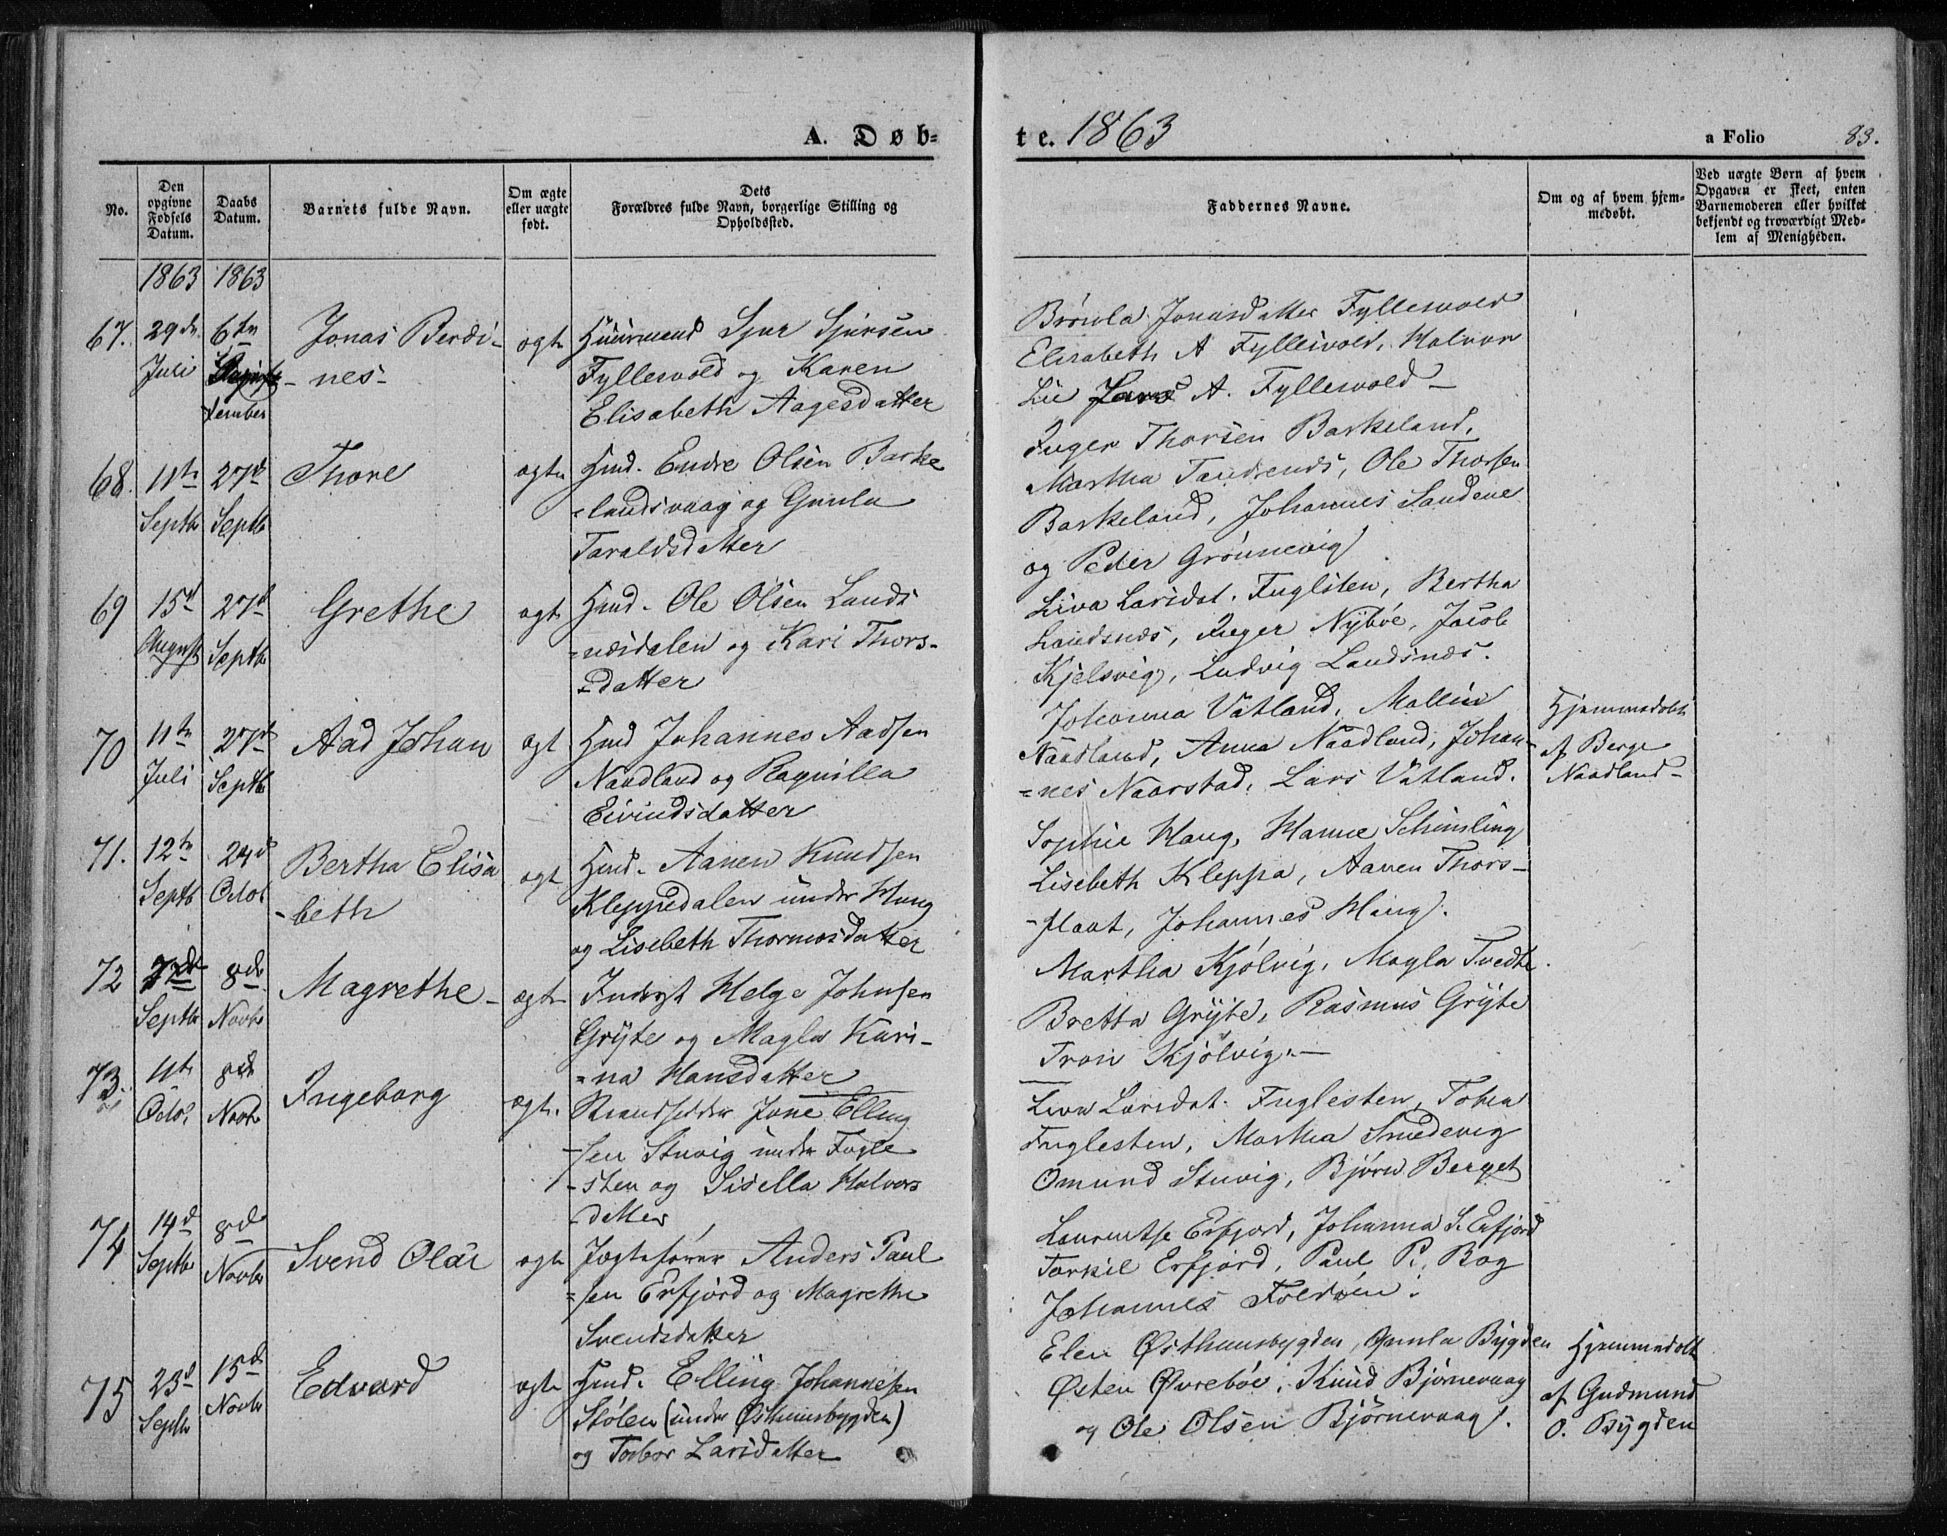 A. Døb-
te. 1863
a Folio 83.
No.
Den opgivne Fødsels Datum.
Daabs Datum.
Barnets fulde Navn.
Om ægte eller uægte født.
Dets Forældres fulde Navn, borgerlige Stilling og Opholdssted.
Faddernes Navne.
Om og af hvem hjemmedøbt.
Ved uægte Børn af hvem
Opgaven er skeet, enten
Barnemoderen eller hvilket
bekjendt og troværdigt Med-
lem af Menigheden.
1863 1863
67. 29de Juli
6te
tember
Jonas Berdi-
nes-
ægte
Huusmand Sjur Sjursen
Fyllesvold og Karen
Elisabeth Aagesdatter
Brønla Jonasdatter Fyllesvold
Elisabeth A Fyllesvold, Halvor
Lie Lars A. Fyllesvold-
68. 11te Septbr
27de Septbr
Thore
ægte
Hmd. Endre Olsen Barke
=landsvaag og Gunla
Taraldsdatter
Inger Thorsen Barkeland,
Martha, Ole Thorsen
Barkeland, Johannes Sandene
og Peder Grønnevig
69 15de August
27de Septbr
Grethe
ægte
Hmd. Ole Olsen Lands
=næsdalen og Kari Thors-
=datter
Liva Larsdat. Fuglsten, Bertha
Landsnæs, Inger Nybøe, Jacob
Kjelsvig, Ludvig Landsnæs.
70 11te Juli
27de Septbr
Aad Johan
ægte
Hmd Johannes Aadsen
Naadland og Ragnilla
Eivindsdatter
Johanna Vatland, Mallin
Naadland, Anna Naadland, Johan-
=nes Naarstad, Lars Vatland.
Hjemmedøbt
af Berge
Naadland-
71. 12te Septb
24de Octob
Bertha Elisa
-beth
ægte
Hmd. Aanen Knudsen
Kleppedalen under Haug
og Lisebeth Thormosdatter
Sophie Haug, Hanne
Lisebeth Kleppa, Aanen Thors-
-flaat, Johannes Haug.
72
Septbr
8de Novbr
Magrethe-
ægte
Inderst Helge Johnsen
Gryte og Magla Kari-
=na Hansdatter
Martha Kjølvig, Magla Tvedte.
Bretta Gryte, Rasmus Gryte
Tron Kjølvig.-
73. 4te Octob.
8de Novbr
Ingeborg
ægte.
Strandsidder Jone Elling
-sen Stuvig under Fugle
-sten og Sisella Halvors
datter
Liva Larsdat. Fuglesten, Tobia
Fuglesten, Martha Smedevig
Omund Stuvig, Bjørn Berget
74 14de Septbr
8de Novbr
Svend Olai
ægte
Jagtefører Anders Paul
=sen Erfjord og Magrethe
Svendsdatter
Laurentse Erfjord, Johanna S. Erfjord
Torkil Erfjord, Paul P. Bog
Johannes Foldøen.
75 23de Septbr
15de Novbr
Edvard
ægte
Hmd. Elling Johannesen
Stølen (under Østhuusbygden)
og Torbor Larsdatter
Elen Østhuusbygden, Gunla Bygden
Østen Øvrebøe, Knud Bjørnevaag
og Ole Olsen Bjørnevaag.
Hjemmedøbt
af Gudmund
O. Bygden